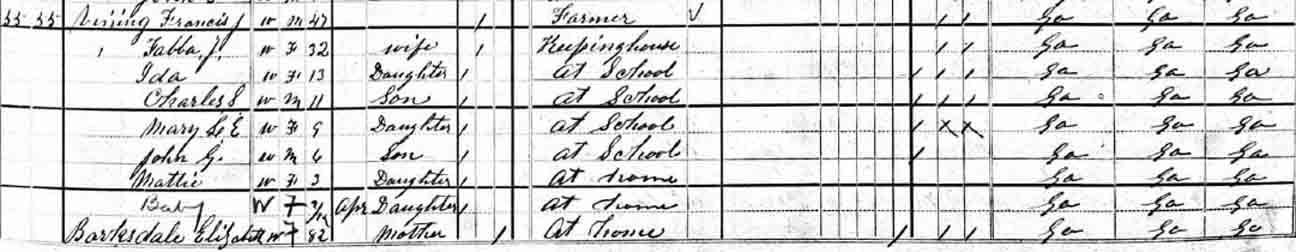 55 55 Vining Francis J W M 47 / Farmer ✓ / / Ga Ga Ga
Fabba, J. W F 32 wife / Keepinghouse / / Ga Ga Ga
Ida W F 13 Daughter / At School / / / Ga Ga Ga
Charles S W M 11 Son / At School / / / Ga Ga Ga
Mary L E W F 9 Daughter / At School / X X Ga Ga Ga
John G. W M 6 Son / At School / Ga Ga Ga
Mattie W F 3 Daughter / At home Ga Ga Ga
Baby W F 2/12 Apr Daughter / At home Ga Ga Ga
Barksdale Elizabeth W F 82 Mother / At home / / / Ga Ga Ga